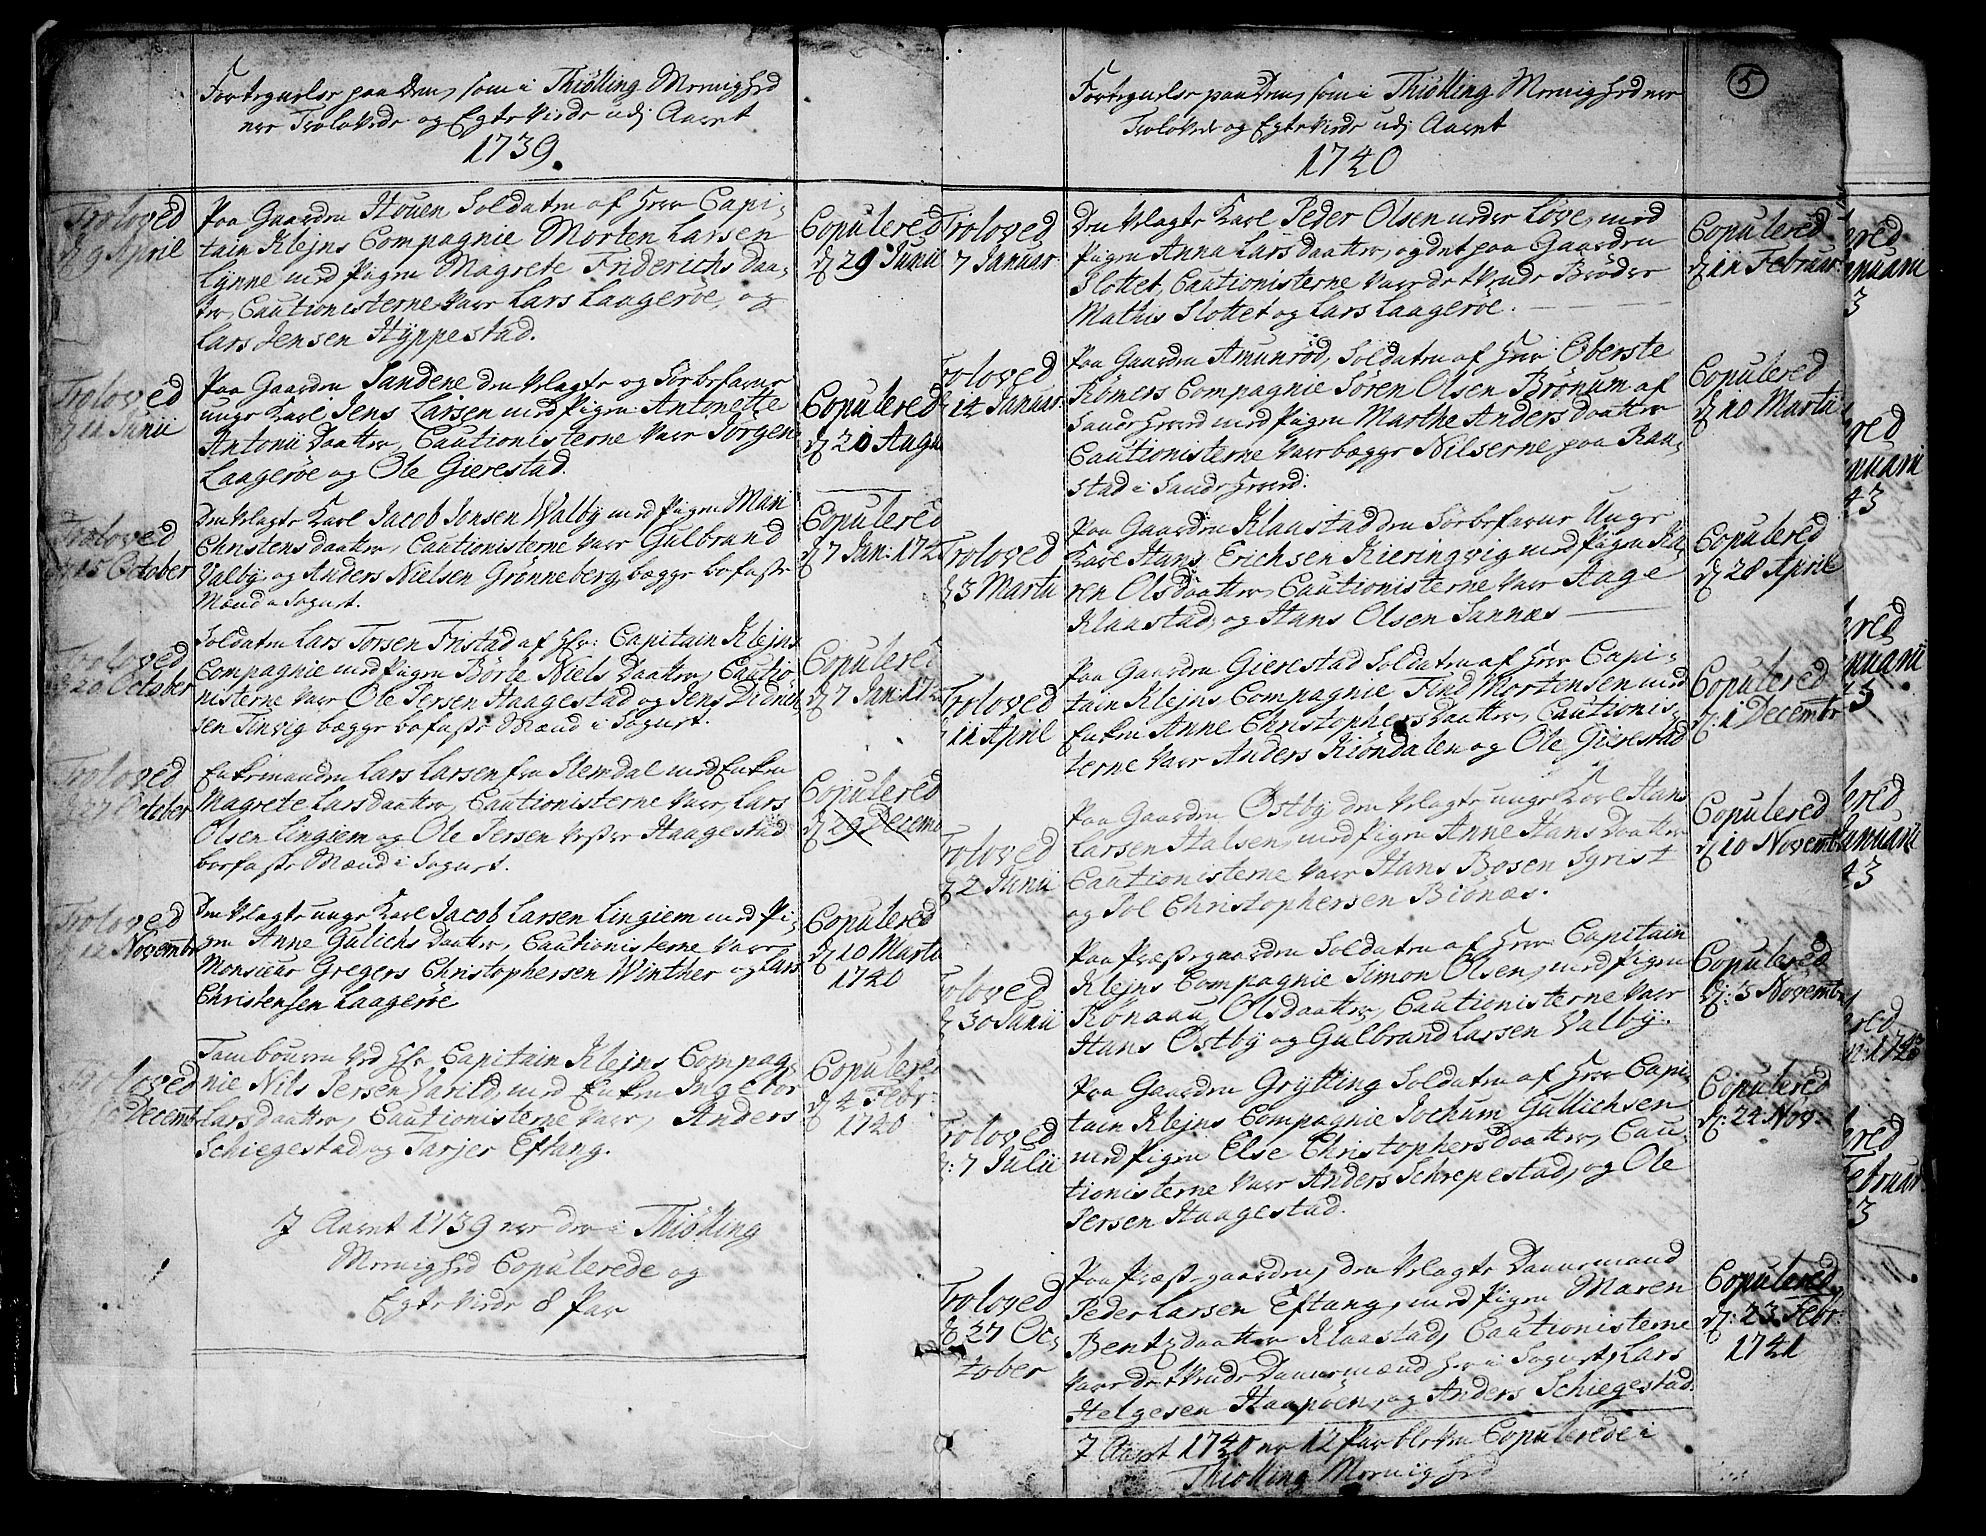 Fortegnelse paa Dem, som i Thiølling Meenighed
ere Trolovede og Egteviede udj Aaret
1739.
Troloved
d 9 April
Paa Gaarden Houen Soldaten af Herr Capi-
tain Klejns Compagnie Morten Larsen
Lynne med Pigen Magrete Friderichs Daa-
ter, Cautionisterne vare Lars Laagerøe, og
Lars Jensen Hyppestad.
Copulered
d 29 Junii
Troloved
d 11 Junii
Paa Gaarden Sandene den Velagte og Førbefarne
unge Karl Jens Larsen med Pigen Antonette
Antonii Daatter, Cautionisterne vare Jørgen
Laagerøe og Ole Gierestad.
Copulered
d 20 Augu
Troloved
d 15 October
Den Velagte Karl Jacob Jonsen Walby med Pigen Mari
Christens daatter, Cautionisterne vare Gulbrand
Valby, og Anders Nielsen Grønneberg, begge bofaste
Mænd i Sognet.
Copulered
d 7 Jan: 174
Troloved
d 20 October
Soldaten Lars Torsen Fristad af Hr: Capitain Klejns
Compagnie med Pigen Børte Niels Daatter, Cautio-
nisterne vare Ole Persen Haagestad og Jens Didrich-
sen Tinvig begge bofaste Mænd i Sognet.
Copulered
d 7 Jan: 174
Troloved
d 27 October
Enkemanden Lars Larsen fra Slemdal med Enken
Magrete Larsdaatter, Cautionisterne vare, Lars
Olsen Lingiem og Ole Persen Vester Haagestad
boefaste Mænd i Sognet.
Copulered
d 29 Decemb
Troloved
d 12 Novembr
Den Velagte unge Karl Jacob Larsen Lingiem med Pi-
gen Anne Gulichs Daatter, Cautionisterne vare
Monsieur Gregers Christophersen Winther og Lars
Christensen Laagerøe
Copulered
d 10 Marti
1740
Troloved
Decemb
Tambouren ved Hr Capitain Klejns Compag-
nie Nils Persen Varild, med Enken Ingebor
Larsdaatter, Cautionisterne vare, Anders
Schiegestad, og Tarjer Eftang.
Copulered
d 4 Febr:
1740
I Aaret 1739 ere der i Thiølling
Meenighed Copulerede og
Egteviede 8 Par
5
Fortegnelse paa Dem, som i Thiølling Meenighed ere
Trolovede og Egteviede udj Aaret
1740
Troloved
7 Januar
Den Velagte Karl Peder Olsen under Løve, med
Pigen Anna Larsdaatter, og det paa Gaarden
Slottet, Cautionisterne vare de tvende Brødre
Mathis Slottet og Lars Laagerøe.
Copulered
d 11 Februar:
Troloved
d 14 Januar:
Paa Gaarden Amunrød, Soldaten af Herr Oberste
Rømers Compagnie Søren Olsen Brønum af
Sande Herred med Pigen Marthe Anders Daatter
Cautionisterne vare begge Nilserne, paa Raa-
stad i Sande Herred.
Copulered
d 10 Martii
Troloved
d 3 Martii
Paa Gaarden Klaastad den Førbefarne Unge
Karl Hans Erichsen Kieringvig med Pigen Ka-
ren Olsdaatter, Cautionisterne vare Aage
Klaastad, og Hans Olsen Sannæs
Copulered
d 28 April
Troloved
d 11 April
Paa Gaarden Gierestad Soldaten af Herr Capi-
tain Klejns Compagnie Find Mortensen med
Enken Anne Christophers Daatter, Cautionis-
terne vare Anders Kiøndalen og Ole Gierestad
Copulered
d: 1 Decembr
Troloved
d 2 Junii
Paa Gaarden Østby den Velagte unge Karl Hans
Larsen Halsen, med Pigen Anne Hans Daatter
Cautionisterne vare Hans Bosen Sgrist
og Sol Christophersen Biønæs.
Copulered
d 10 Novemb
Troloved
d 30 Junii
Paa Præste gaarden Soldaten af Herr Capitain
Klejns Compagnie Simon Olsen, med Pigen
Rønauu Olsdaatter, Cautionisterne vare
Hans Østby og Gulbrand Larsen Valby.
Copulered
d: 3 Novembr
Troloved
d: 7 Julii
Paa Gaarden Grytting Soldaten af Herr Capi-
tain Klejns Compagnie Jochum Gullichsen
med Pigen Else Christophersdaatter, Cau-
tionisterne vare Anders Schrepestad, og Ole
Persen Haagestad.
Copulered
d: 24 Nov:
Troloved
d 27 Oc-
tober
Paa Præste gaarden, den Velagte Dannemand
Peder Larsen Eftang, med Pigen Maren
Bentzdaatter Klaastad, Cautionisterne
vare de tvende Dannemænd her i Sognet, Lars
Helgesen Haapøen, og Anders Schiegestad.
Copulered
d: 23 Febr:
1741
I Aaret 1740 ere 12 Par bleven Copulerede i
Thiølling Meenighed